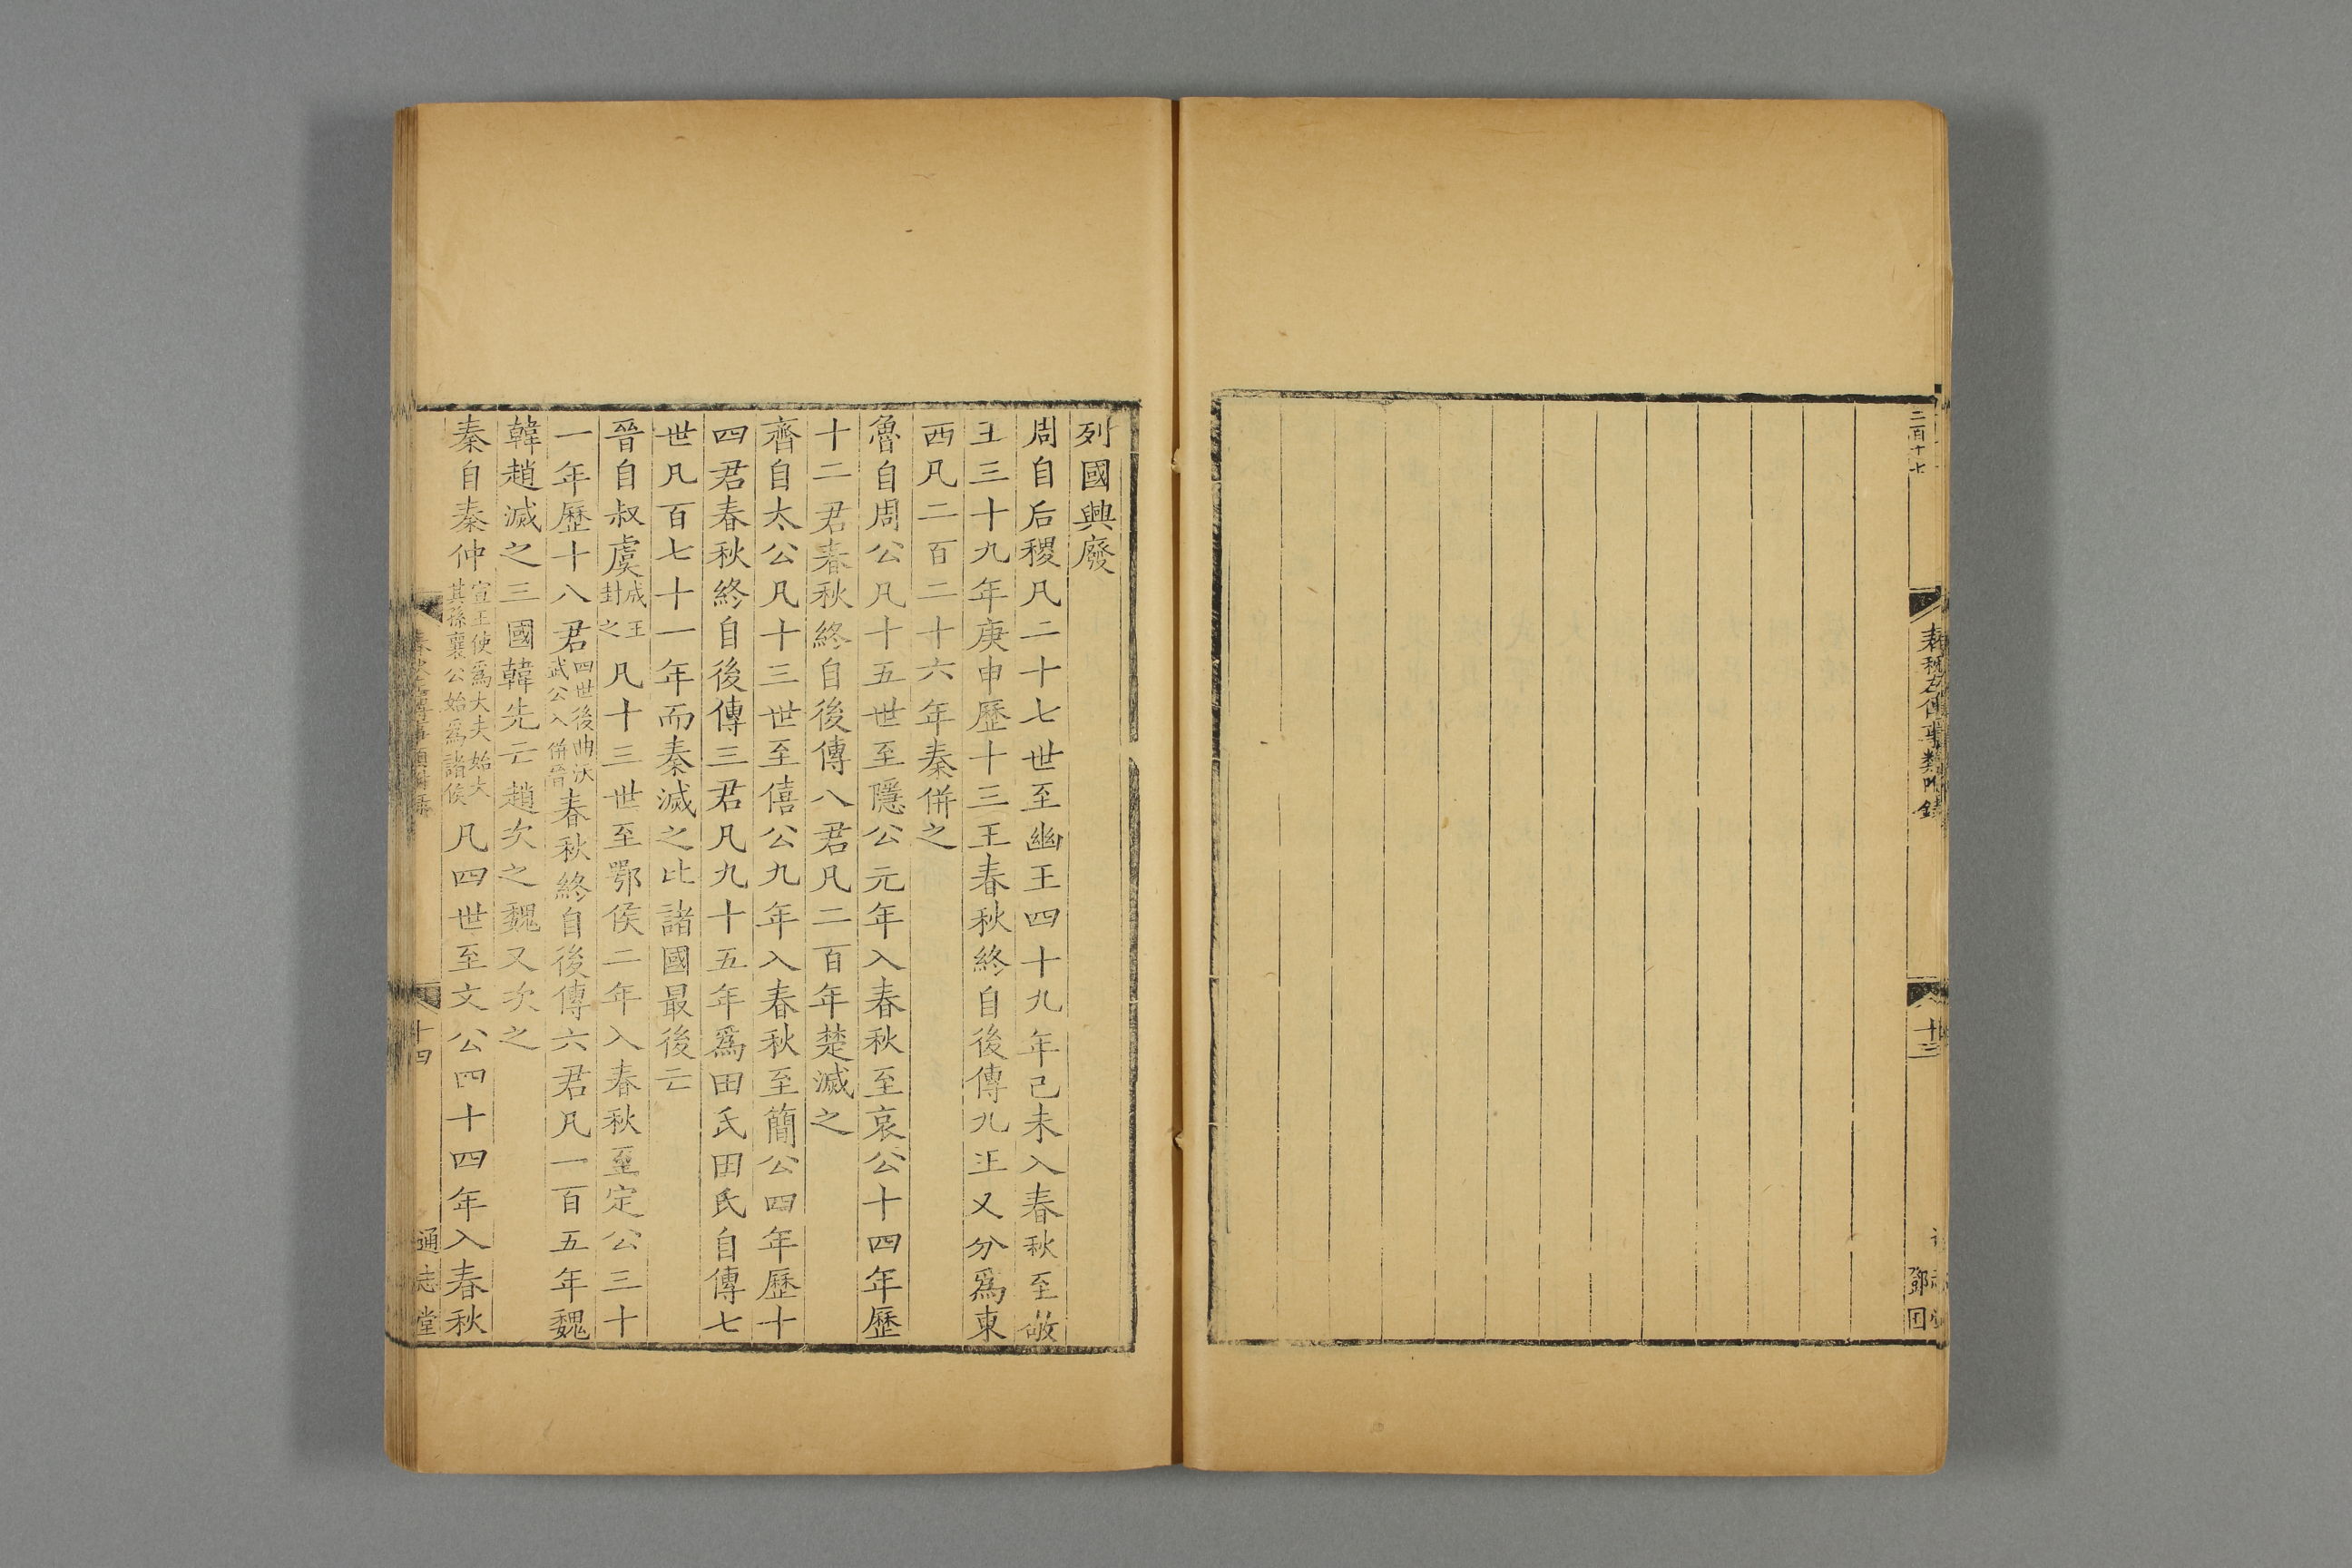 二百十七
春秋左傳事類附錄
十三
鄧国
列國興廢
周自后稷凡二十七世至幽王四十九年己未入春秋至敬
王三十九年庚申歷十三王春秋終自後傳九王又分爲東
西凡二百二十六年秦併之
魯自周公凡十五世至隱公元年入春秋至哀公十四年歷
十二君春秋終自後傳八君凡二百年楚滅之
齊自太公凡十三世至僖公九年入春秋至簡公四年歷十
四君春秋終自後傳三君凡九十五年爲田氏田氏自傳七
世凡百七十一年而秦滅之比諸國最後亡
晉自叔虞成王封之凡十三世至鄂侯二年入春秋至定公三十
一年歷十八君四世後曲沃武公入併晉春秋終自後傳六君凡一百五年魏
韓趙滅之三國韓先亡趙次之魏又次之
秦自秦仲宣王使爲大夫始大其孫襄公始爲諸侯凡四世至文公四十四年入春秋
十四
通志堂